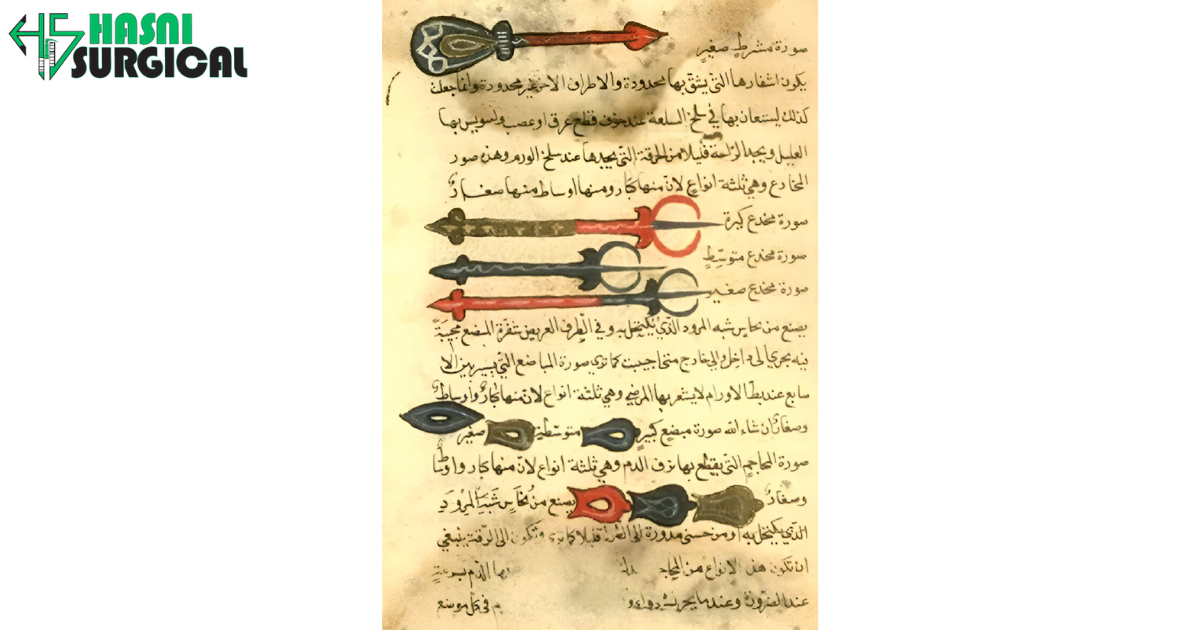 HASNI
SURGICAL
صورة مشرط صغير
يكون اشفارها التي يشق بها محدودة والاطراف الاخر غير محدودة وانما جعلت
كذلك ليستعان بها في سلخ السلعة عند خوف قطع عرق او عصب
العليل ويجد الراحة قليلا من الحرقة التي يجدها عند سلخ الورم وهذه صور
المخادع وهي ثلثة انواع لان منها كبار ومنها اوساط ومنها صغار
صورة مخدع كبيرة
صورة مخدع متوسط
صورة مخدع صغير
يصنع من نحاس شبه المرود الذي يكتحل به وفي الطرف العريض
فيه يجري الى داخل والى خارج متى احببت كما ترى صورة المباضع التي بين الا
صابع عند بط الاورام لا يشعر بها المرضى وهي ثلثة انواع لان منها كبار واوساط
وصغار ان شاء الله صورة مبضع كبير متوسطة صغير
صورة المحاجم التي يقطع بها نزف الدم وهي ثلثة انواع لان منها كبار واوساط
وصغار يصنع من نحاس شبه المرود
الذي يكتحل به او من مدورة الى قليلا كما ترى وتكون الى الرقة ينبغي
ان تكون هذه الانواع من المحاجم بها الدم بسرعة
عند الضرورة وعندما في كل موضع